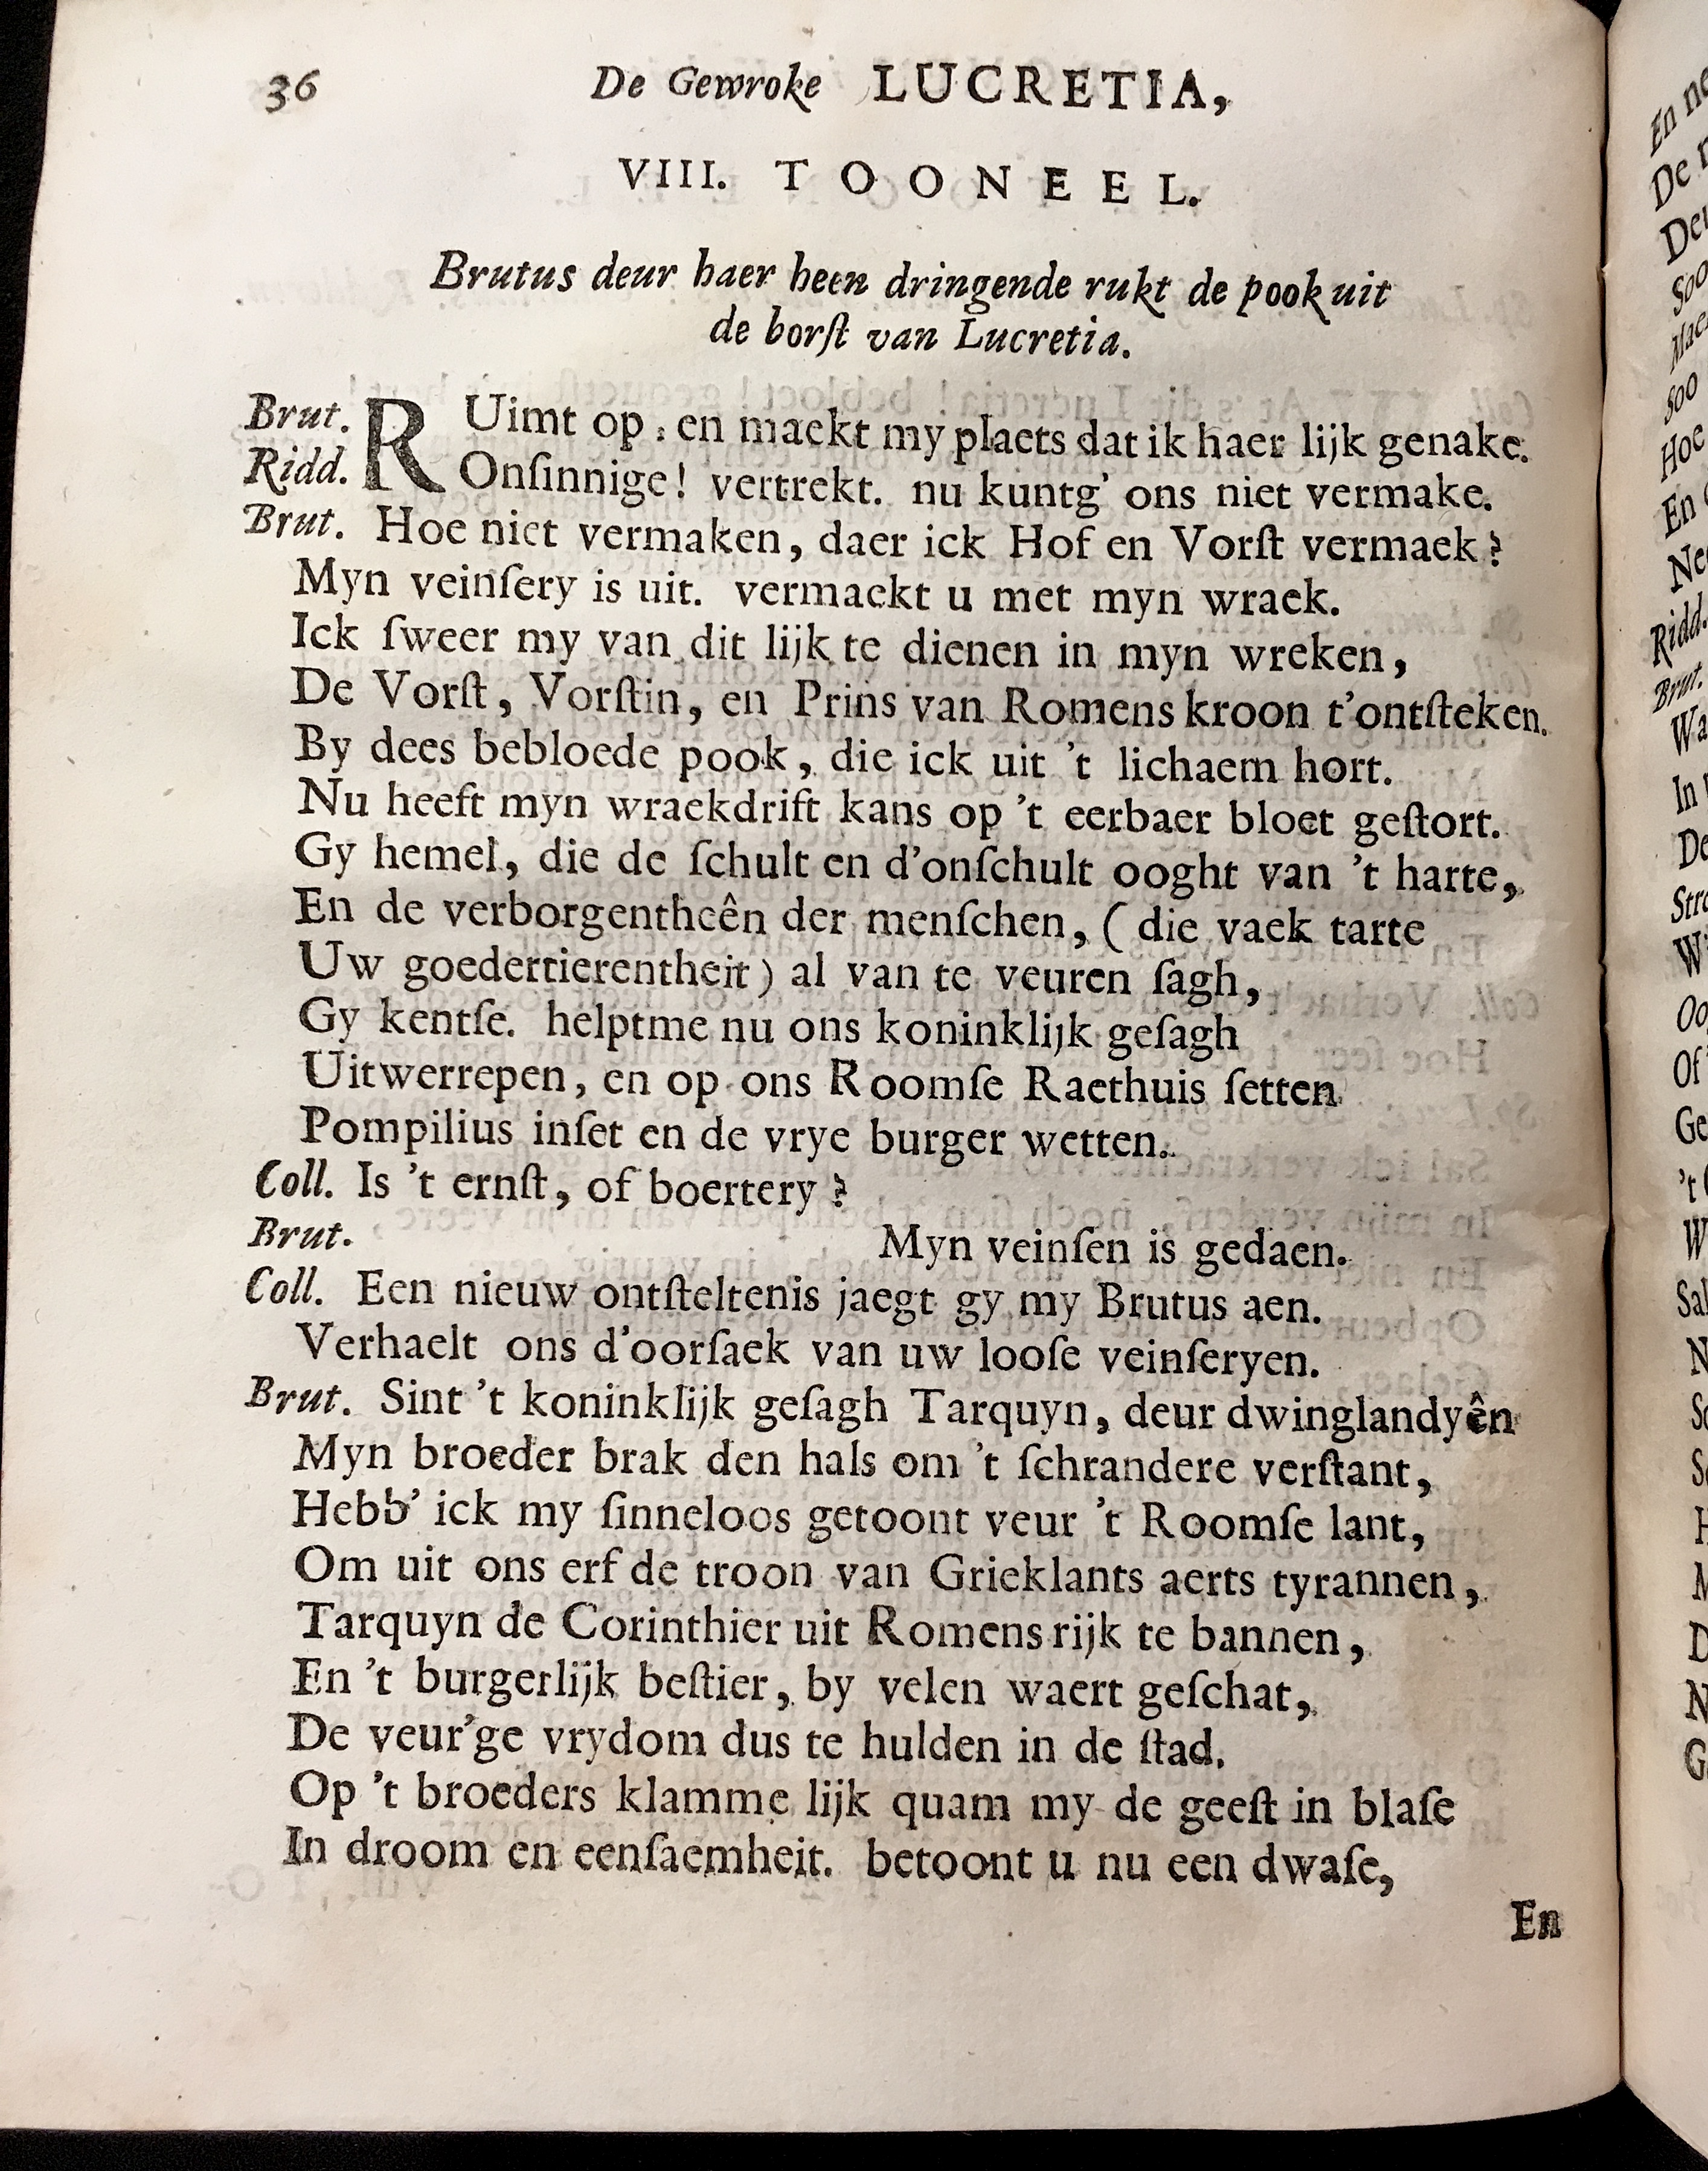 36 De Gewroke LUCRETIA,
VIII. TOONEEL.
Brutus deur haer heen dringende rukt de pook uit
de borſt van Lucretia.
Brut. RUimt op, en maekt my plaets dat ik haer lijk genake.
Ridd. Onſinnige! vertrekt. nu kuntg' ons niet vermake.
Brut. Hoe niet vermaken, daer ick Hof en Vorſt vermaek?
Myn veinſery is uit. vermaekt u met myn wraek.
Ick ſweer my van dit lijk te dienen in myn wreken,
De Vorſt, Vorſtin, en Prins van Romens kroon t'ontſteken.
By dees bebloede pook, die ick uit 't lichaem hort.
Nu heeft myn wraekdrift kans op 't eerbaer bloet geſtort.
Gy hemel, die de ſchult en d'onſchult ooght van 't harte,
En de verborgentheên der menſchen, (die vaek tarte
Uw goedertierentheit) al van te veuren ſagh,
Gy kentſe. helptme nu ons koninklijk geſagh
Uitwerrepen, en op ons Roomſe Raethuis ſetten
Pompilius inſet en de vrye burger wetten.
Coll. Is 't ernſt, of boertery?
Brut. Myn veinſen is gedaen.
Coll. Een nieuw ontſteltenis jaegt gy my Brutus aen.
Verhaelt ons d'oorſaek van uw looſe veinſeryen.
Brut. Sint 't koninklijk geſagh Tarquyn, deur dwinglandyên
Myn broeder brak den hals om 't ſchrandere verſtant,
Hebb' ick my ſinneloos getoont veur 't Roomſe lant,
Om uit ons erf de troon van Grieklants aerts tyrannen,
Tarquyn de Corinthier uit Romens rijk te bannen,
En 't burgerlijk beſtier, by velen waert geſchat,
De veur'ge vrydom dus te hulden in de ſtad.
Op 't broeders klamme lijk quam my de geeſt in blaſe
In droom en eenſaemheit. betoont u nu een dwaſe,
En